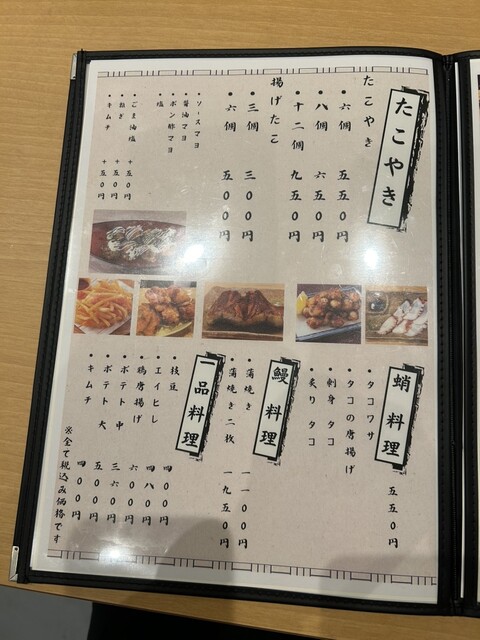 たこやき
たこやき
・六個 五五0円
・八個 六五0円
・十二個 九五0円
揚げたこ
・三個 三00円
・六個 五00円
・ソースマヨ
・醤油マヨ
・ポン酢マヨ
・塩
・ごま油塩 +五0円
・ねぎ +五0円
・キムチ +五0円
蛸料理 五五0円
・タコワサ
・タコの唐揚げ
・刺身タコ
・炙りタコ
鰻料理
・蒲焼き 一一00円
・蒲焼き二枚 一九五0円
一品料理
・枝豆 四00円
・エイヒレ 四八0円
・鶏唐揚げ 六00円
・ポテト 中 三六0円
・ポテト 大 五00円
・キムチ 四00円
※全て税込み価格です